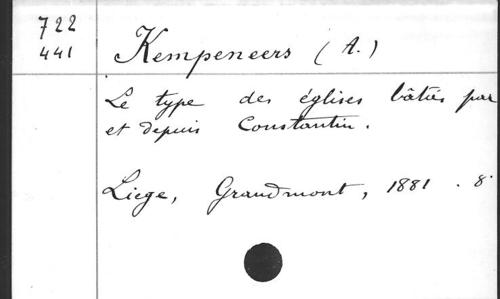 722
441
Kempeneers (A.)
Le type des églises bâties par
et depuis Constantin.
Liege, Grandmont, 1881. 8°